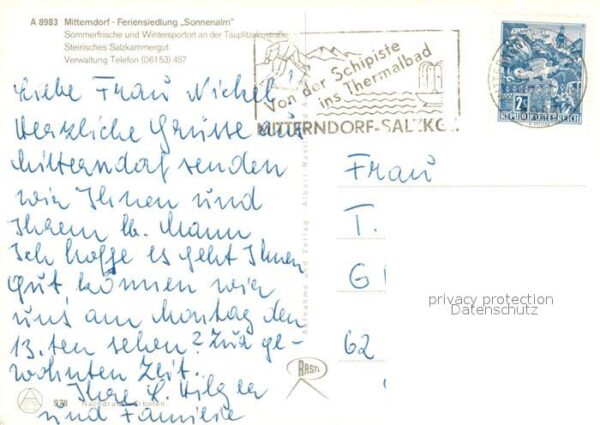 A 8983 Mitterndorf - Feriensiedlung „Sonnenalm"
Sommerfrische und Wintersportort an der Tauplitzalmstraße
Steirisches Salzkammergut
Verwaltung Telefon (06153) 457
Liebe Frau Nickel!
Herzliche Grüsse aus
Mitterndorf senden
wir Ihnen und
Ihrem lb. Mann
Ich hoffe es geht Ihnen
gut können wir
uns am Montag den
13.ten sehen? Zur ge-
wohnten Zeit.
Ihre L. Hilger
und Familie
978 Nachdruck verboten
Aufnahme und Verlag: Albult Rastl, Bad
RASTL
Von der Schipiste
ins Thermalbad
MITTERNDORF-SALZKG.
7S
REPUBLIK ÖSTERREICH
Frau
T.
G
62
privacy protection
Datenschutz